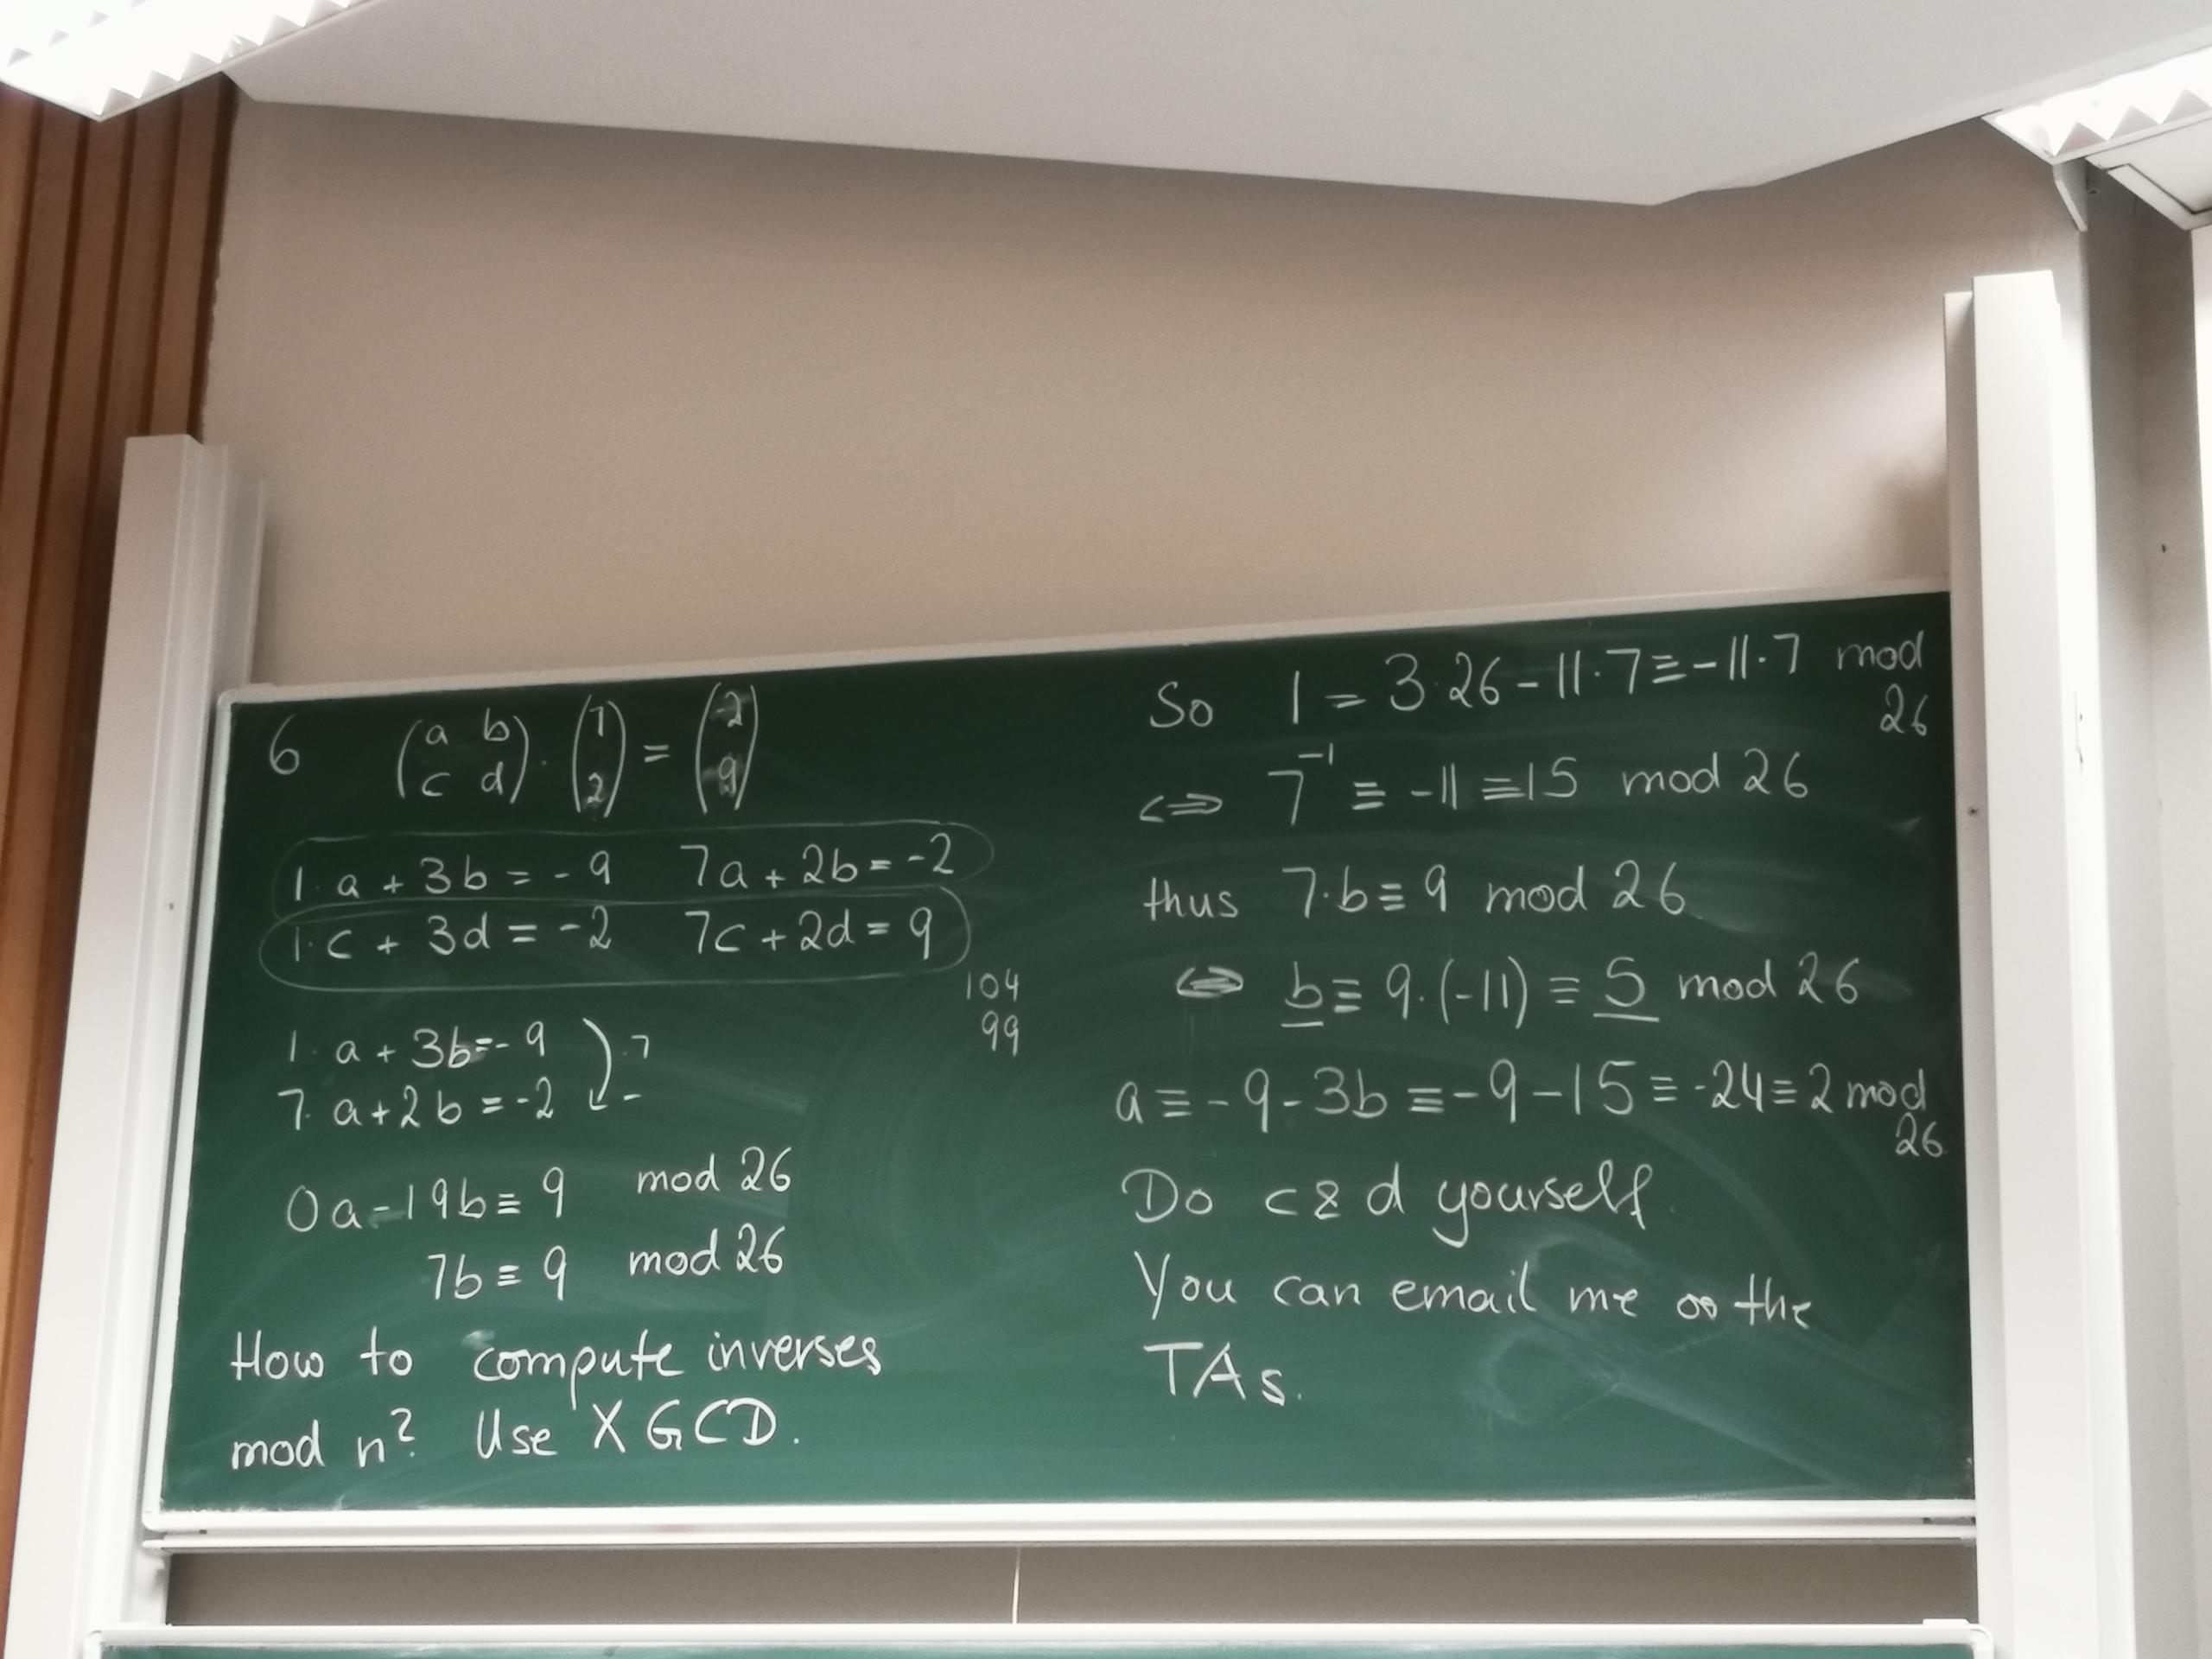 6 (a b
c d) · (7
2) = (-2
9)
1· a + 3b = -9 7a + 2b = -2
1· c + 3d = -2 7c + 2d = 9
104
99
1· a + 3b = -9 ) ·7
7· a + 2b = -2 ↙ -
0a - 19b ≡ 9 mod 26
7b ≡ 9 mod 26
How to compute inverses
mod n? Use XGCD.
So 1 = 3·26 - 11·7 ≡ -11·7 mod
26
⇔ 7⁻¹ ≡ -11 ≡ 15 mod 26
thus 7·b ≡ 9 mod 26
⇔ b ≡ 9·(-11) ≡ 5 mod 26
a ≡ -9 - 3b ≡ -9 - 15 ≡ -24 ≡ 2 mod
26
Do c & d yourself.
You can email me or the
TAs.